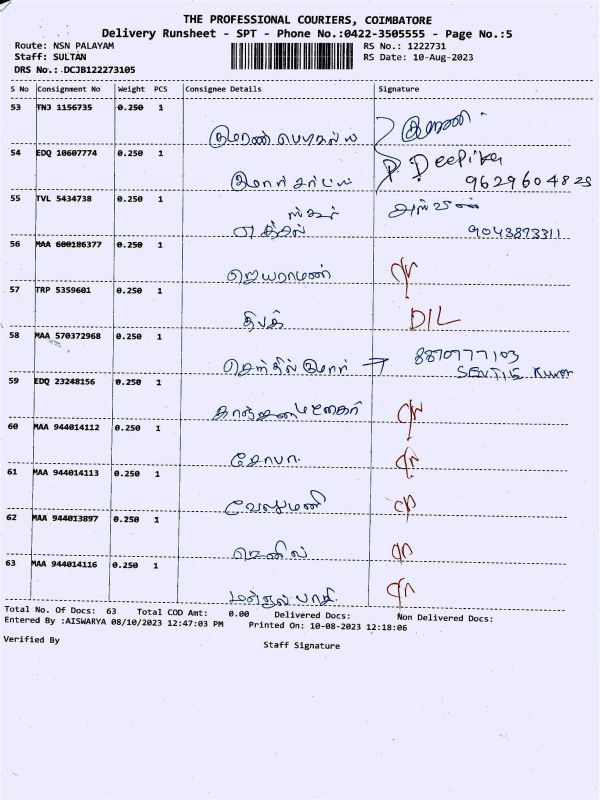 THE PROFESSIONAL COURIERS, COIMBATORE
Delivery Runsheet - SPT - Phone No.:0422-3505555 - Page No.:5
Route: NSN PALAYAM
RS No.: 1222731
Staff: SULTAN
RS Date: 10-Aug-2023
DRS No.: DCJB122273105
S No Consignment No Weight PCS Consignee Details Signature
53 TNJ 1156735 0.250 1
54 EDQ 10607774 0.250 1
P. Deepika
9629604823
55 TVL 5434738 0.250 1
9043873311
56 MAA 600186377 0.250 1
ஜெயராமன்
57 TRP 5359601 0.250 1
தீபக் DIL
58 MAA 570372968 0.250 1
8870777103
59 EDQ 23248156 0.250 1
60 MAA 944014112 0.250 1
சோபா
61 MAA 944014113 0.250 1
வேலுமணி
62 MAA 944013897 0.250 1
63 MAA 944014116 0.250 1
Total No. Of Docs: 63 Total COD Amt: 0.00 Delivered Docs: Non Delivered Docs:
Entered By :AISWARYA 08/10/2023 12:47:03 PM Printed On: 10-08-2023 12:18:06
Verified By
Staff Signature